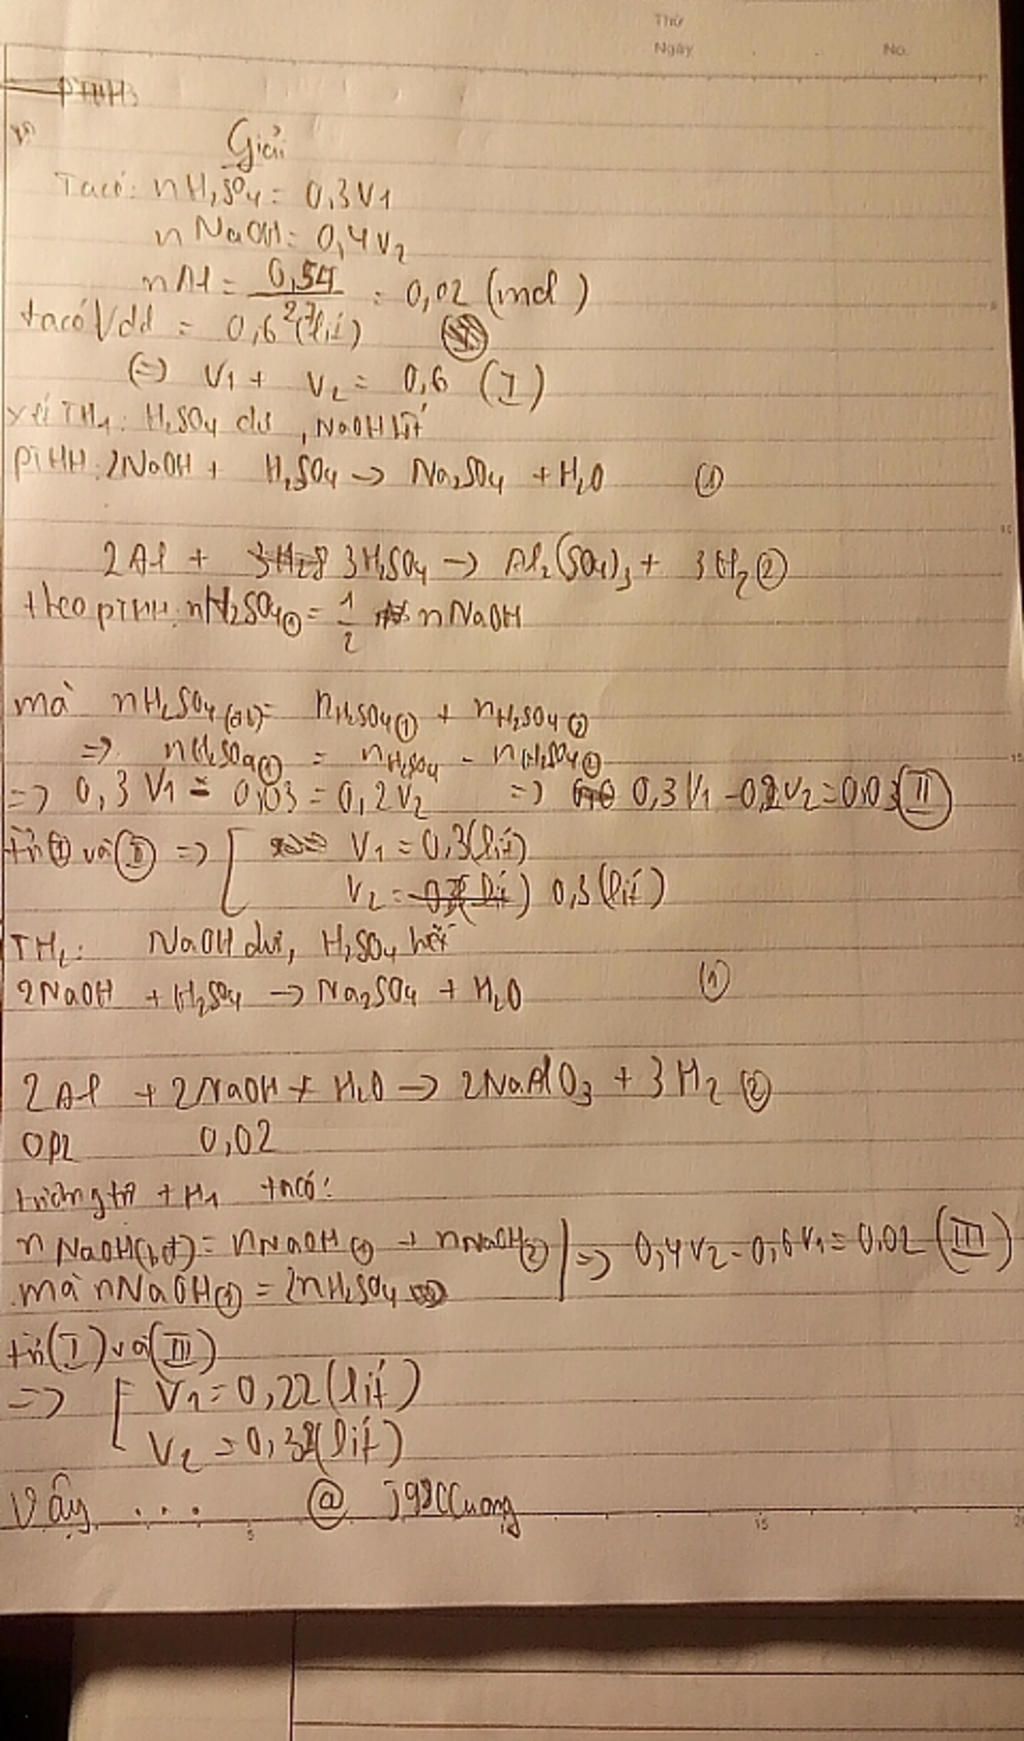 Thứ
Ngày No.
PTHH
Giải
Ta có: nH2SO4 = 0,3V1
nNaOH = 0,4V2
nAl = 0,54/27 = 0,02 (mol)
ta có Vdd = 0,6 (lít)
(=) V1 + V2 = 0,6 (I)
xét TH1: H2SO4 dư, NaOH hết
PTHH: 2NaOH + H2SO4 -> Na2SO4 + H2O (1)
2Al + 3H2SO4 -> Al2(SO4)3 + 3H2 (2)
theo PTHH: nH2SO4(1) = 1/2 nNaOH
mà nH2SO4 = nH2SO4(1) + nH2SO4(2)
=> nH2SO4(1) = nH2SO4 - nH2SO4(2)
=> 0,3V1 - 0,03 = 0,2V2 => 0,3V1 - 0,2V2 = 0,03 (II)
từ (I) và (II) => [ V1 = 0,3 (lít)
V2 = 0,3 (lít)
TH2: NaOH dư, H2SO4 hết
2NaOH + H2SO4 -> Na2SO4 + H2O (1)
2Al + 2NaOH + H2O -> 2NaAlO3 + 3H2 (2)
0,02 0,02
tương tự TH1 ta có:
nNaOH(bđ) = nNaOH(1) + nNaOH(2) => 0,4V2 - 0,6V1 = 0,02 (III)
mà nNaOH(1) = 2nH2SO4
từ (I) và (III)
=> [ V1 = 0,22 (lít)
V2 = 0,38 (lít)
Vậy ...